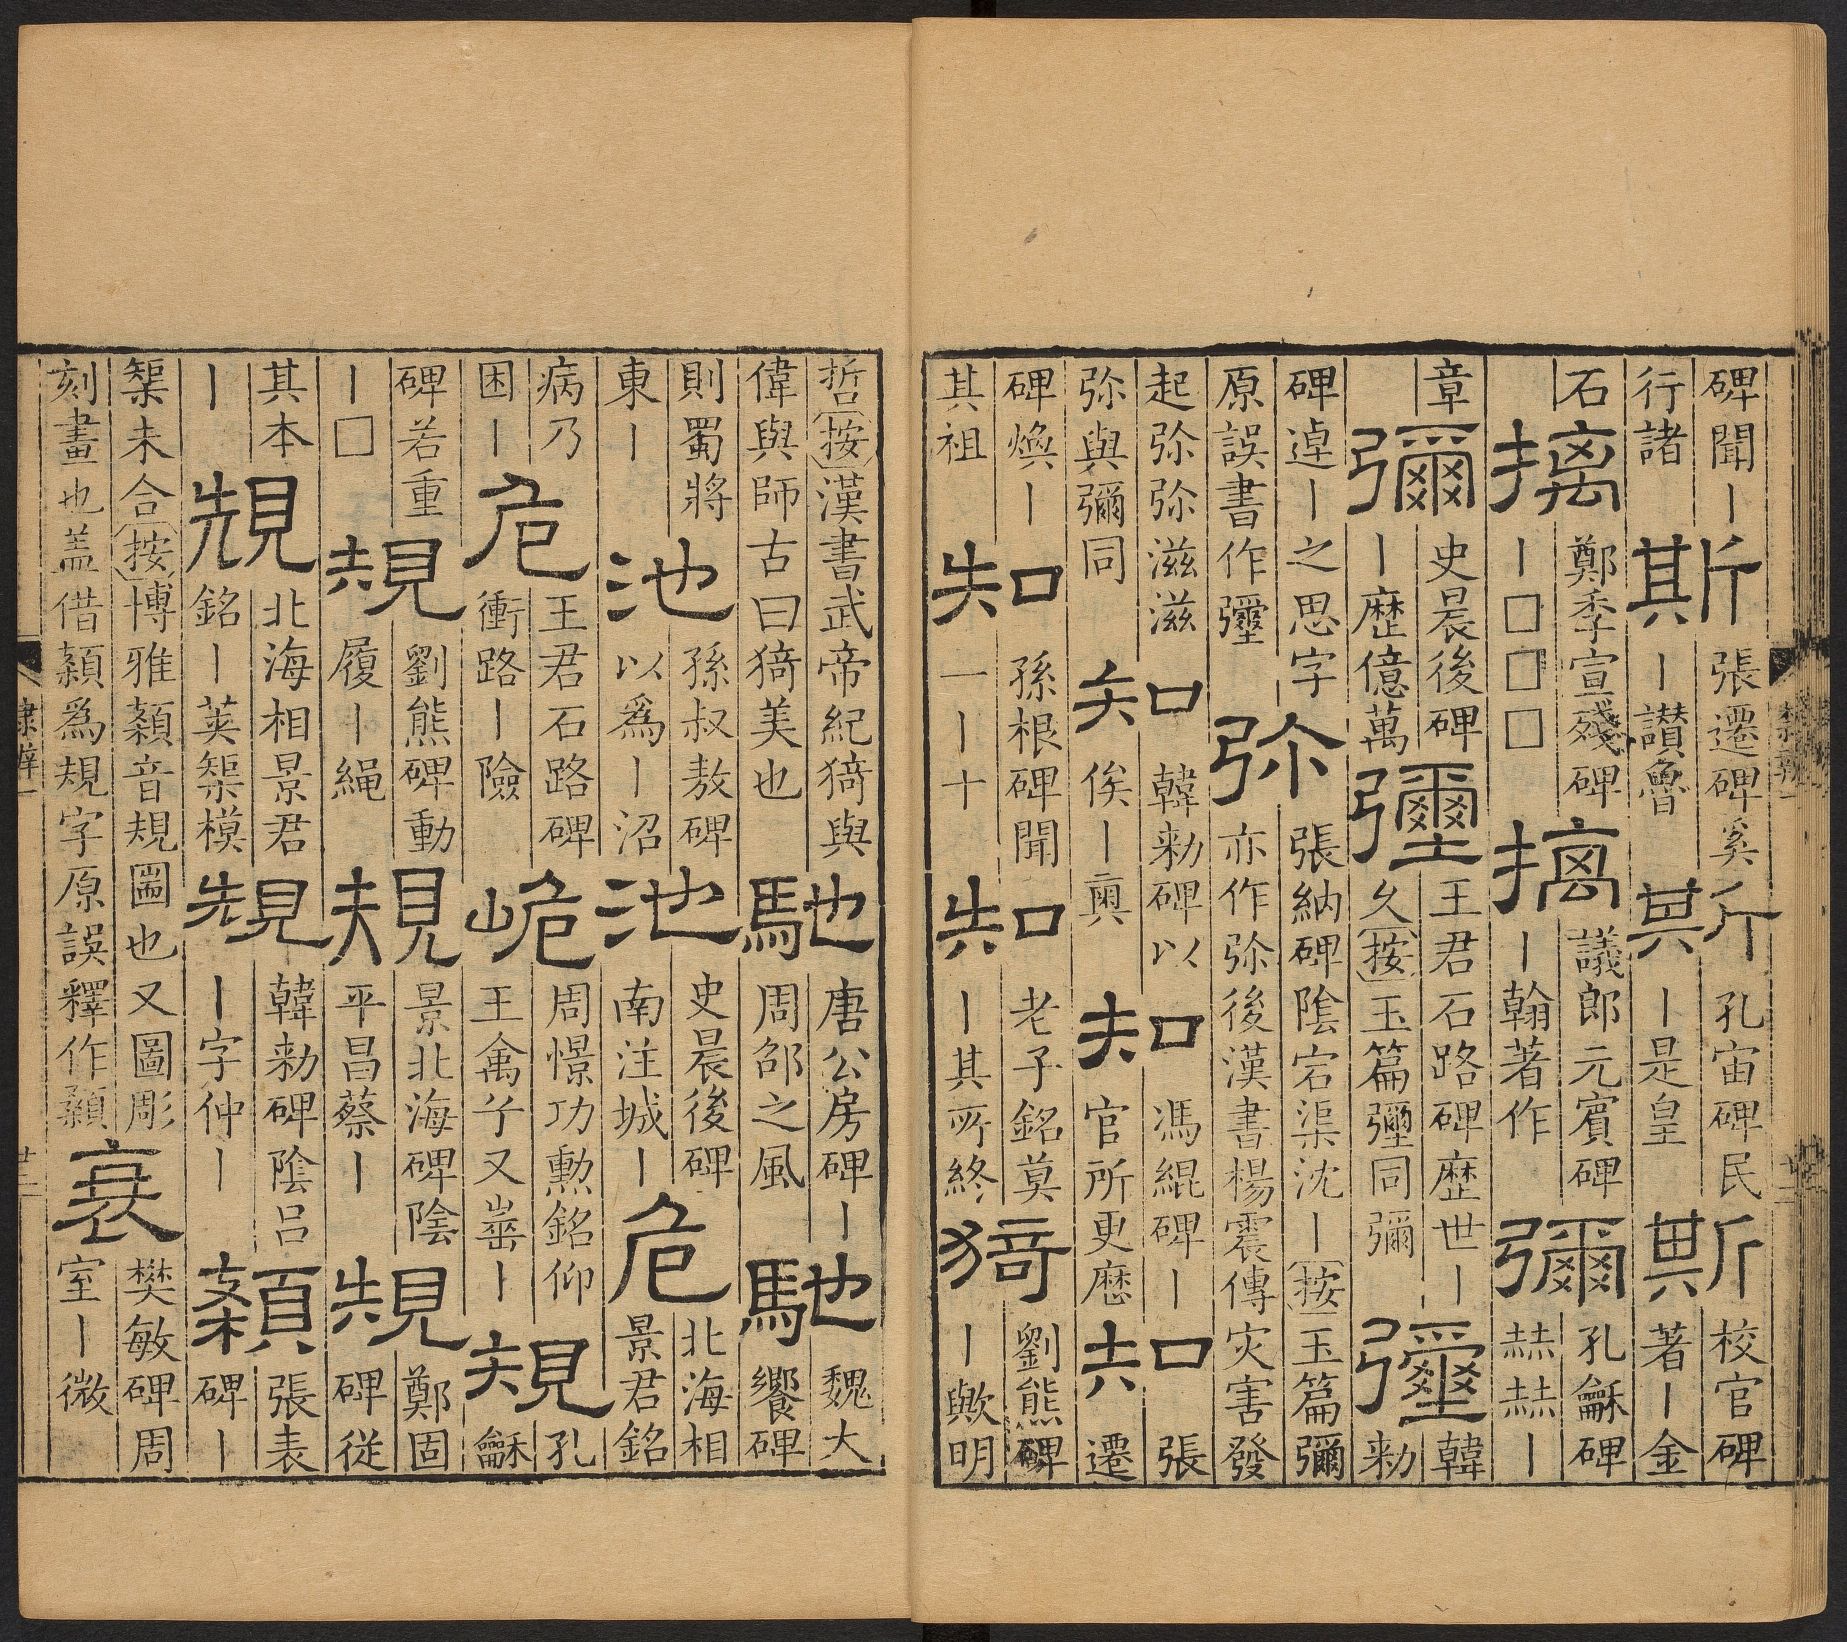 碑聞丨行諸斯張遷碑奚丨讃魯斯孔宙碑民丨是皇斯校官碑著丨金
石摛鄭季宣殘碑丨□□□摛議郎元賓碑丨翰著作彌孔龢碑赫赫丨
章彌史晨後碑丨歷億萬瓕王君石路碑歷世丨久按玉篇瓕同彌瓕韓勑
碑逴丨之思字原誤書作瓕弥張納碑陰宕渠沈丨按玉篇彌亦作弥後漢書楊震傳灾害發
起弥弥滋滋弥與彌同知韓勑碑以俟丨奥知馮緄碑丨官所更歷知張遷
碑煥丨其祖知孫根碑聞一丨十知老子銘莫丨其所終猗劉熊碑丨歟明
哲按漢書武帝紀猗與偉與師古曰猗美也馳唐公房碑丨周邵之風馳魏大饗碑
則蜀將東丨池孫叔敖碑以爲丨沼池史晨後碑南注城丨危北海相景君銘
病乃困丨危王君石路碑衝路丨險峗周憬功勲銘仰王禽兮又崋丨規孔龢
碑若重丨□規劉熊碑動履丨繩規景北海碑陰平昌蔡丨規鄭固碑從
其本丨規北海相景君銘丨英榘模規韓勑碑陰呂丨字仲丨䫌張表碑丨
榘未合按博雅䫌音規圖也又圖彫刻畫也盖借䫌爲規字原誤釋作䫌衰樊敏碑周室丨微